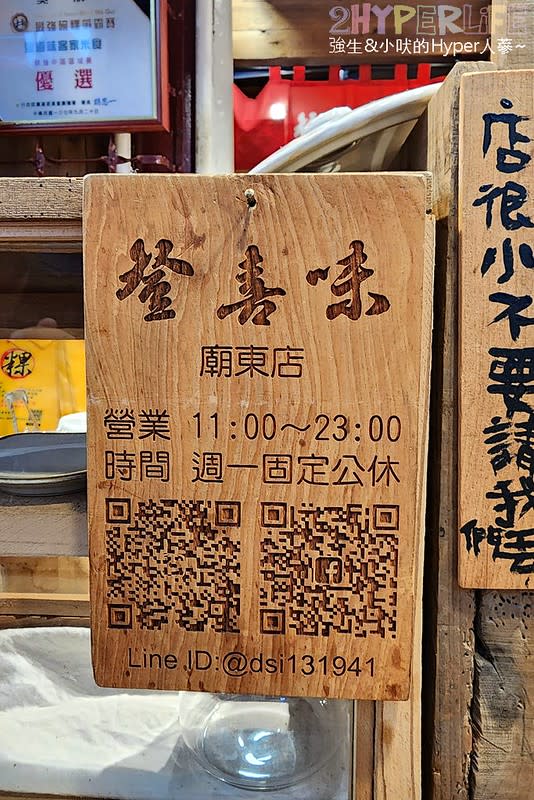 2HYPERLIFE
強生&小吠的Hyper人蔘~
優選
登喜味
廟東店
營業 11:00～23:00
時間 週一固定公休
Line ID:@dsi131941
粿
店很小不要請我們丟